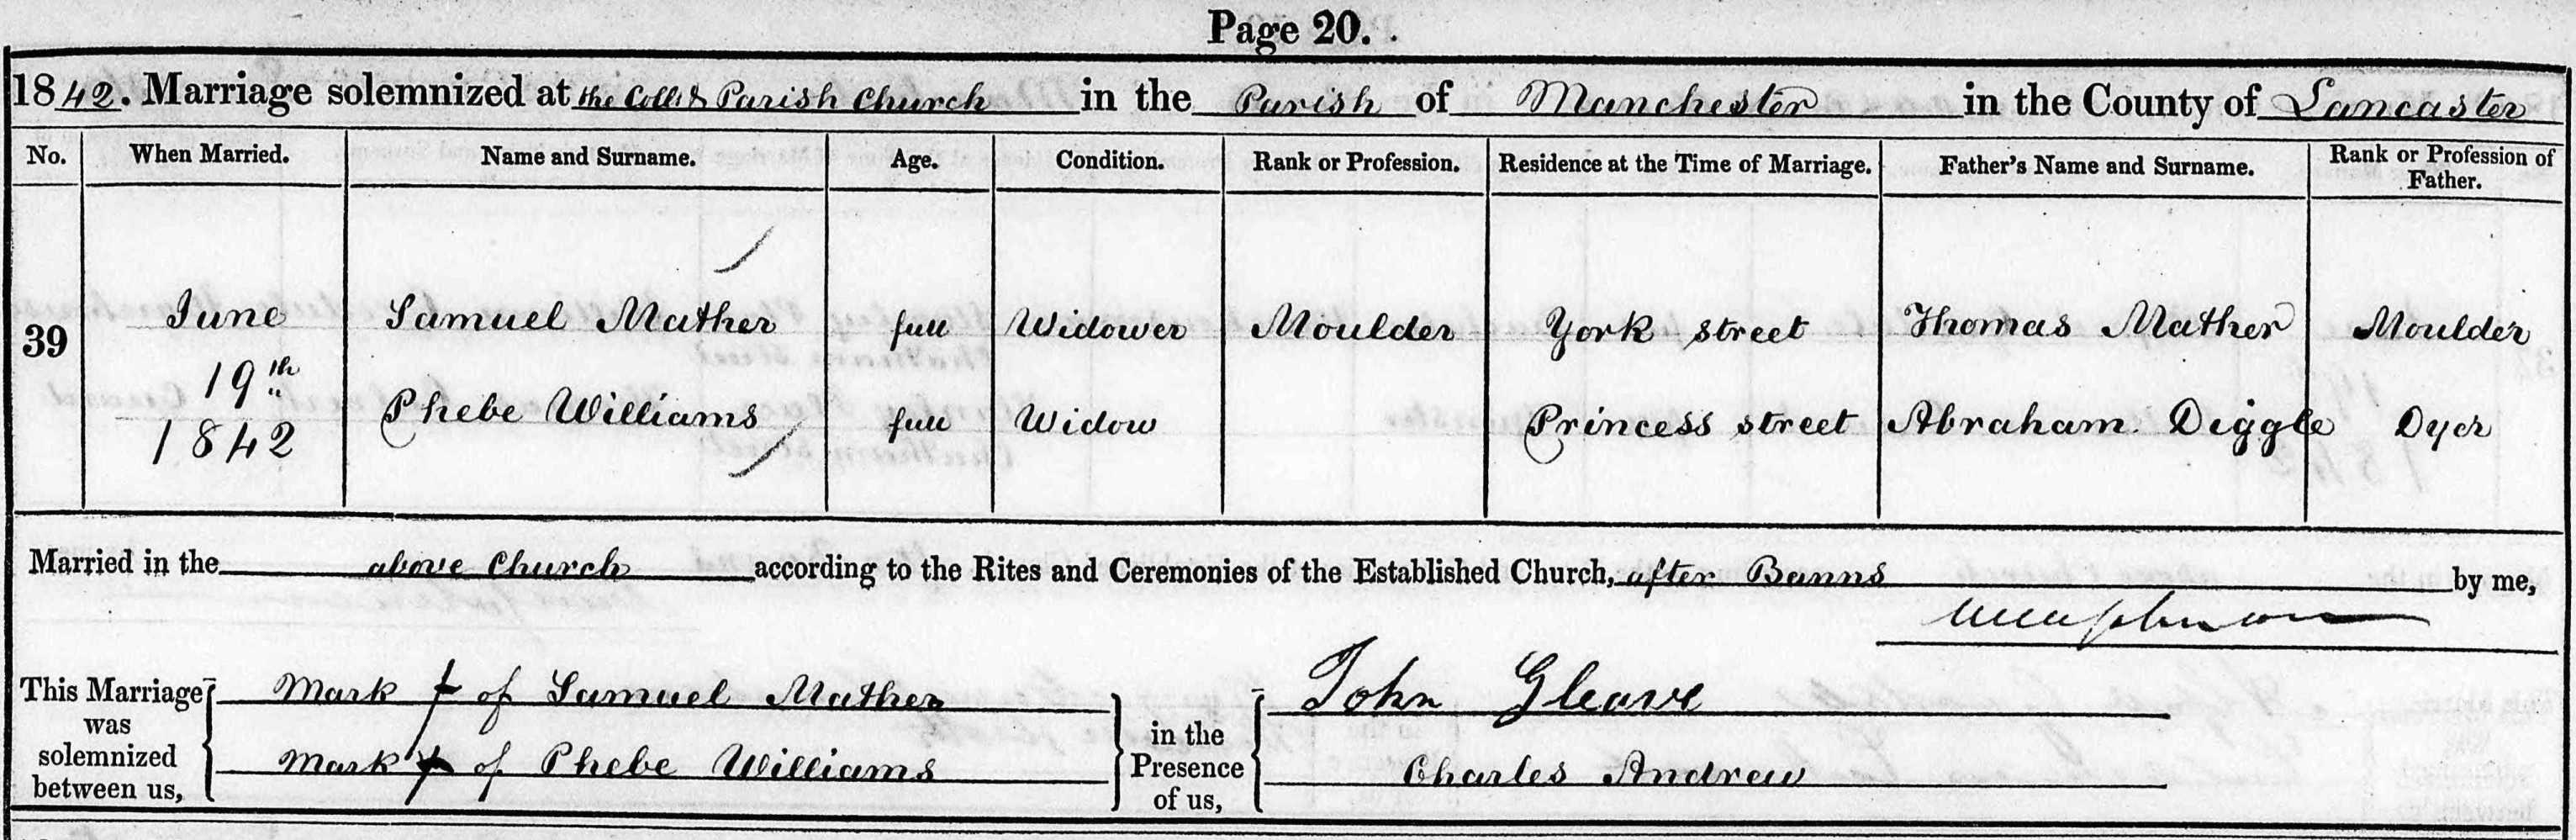 Page 20.
1842. Marriage solemnized at the Coll: & Parish Church in the Parish of Manchester in the County of Lancaster
No. When Married. Name and Surname. Age. Condition. Rank or Profession. Residence at the Time of Marriage. Father's Name and Surname. Rank or Profession of Father.
39 June 19th 1842
Samuel Mather full Widower Moulder York street Thomas Mather Moulder
Phebe Williams full Widow Princess street Abraham Diggle Dyer
Married in the above Church according to the Rites and Ceremonies of the Established Church, after Banns by me,
This Marriage was solemnized between us,
Mark of Samuel Mather
Mark of Phebe Williams
in the Presence of us,
John Gleave
Charles Andrew